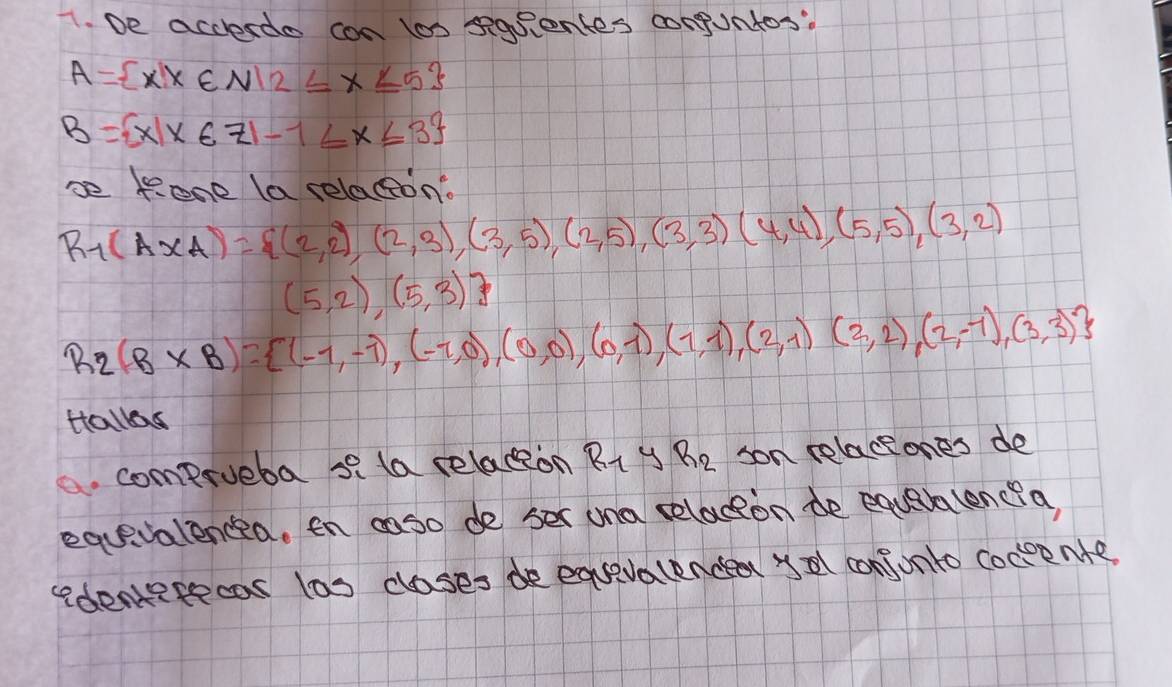 1. De acuerdo con los siguientes conjuntos:
A={x|x ∈ N|2 ≤ x ≤5}
B={x|x ∈ Z|-1 ≤x ≤3}
se tiene la relación:
R1(A×A)={(2,2),(2,3),(3,5),(2,5),(3,3)(4,4),(5,5),(3,2)
(5,2),(5,3)}
R2(B×B)={(-1,-1),(-1,0),(0,0),(0,-1),(1,1),(2,1)(2,2),(2,-1),(3,3)}
Hallar
a. comprueba si la relación R1 y R2 son relaciones de
equivalencia. en caso de ser una relación de equivalencia,
identificar las clases de equivalencia y el conjunto cociente.